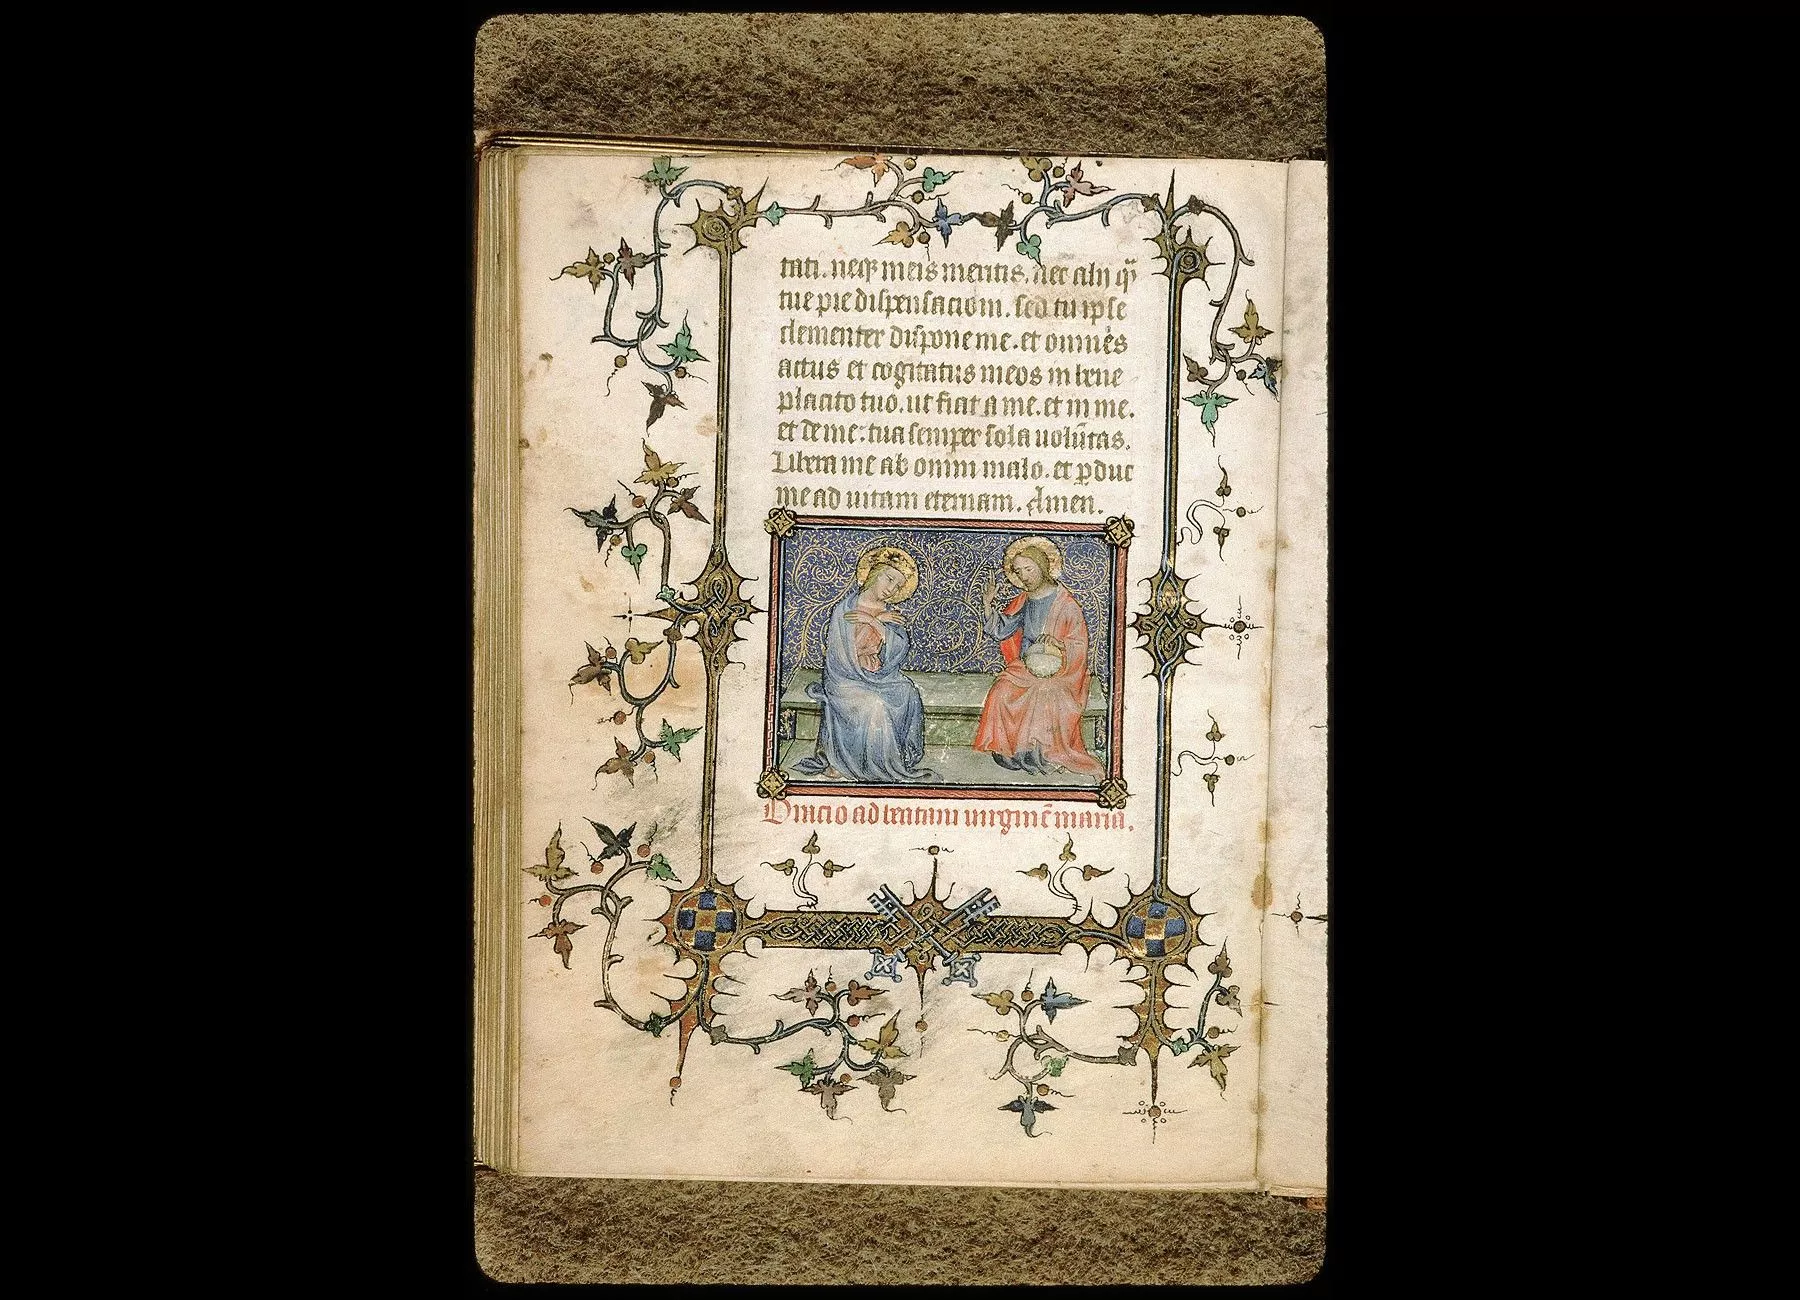 tati. neq̄ meis meritis. nec alij q̄
tue pie dispensaciom. sed tu ipse
clementer dispone me. et omnes
actus et cogitatus meos in bene
placito tuo. ut fiat a me. et in me.
et de me. tua semper sola uolūtas.
Libera me ab omni malo. et ꝑduc
me ad uitam eternam. Amen.
Oracio ad beatam uirginē maria.